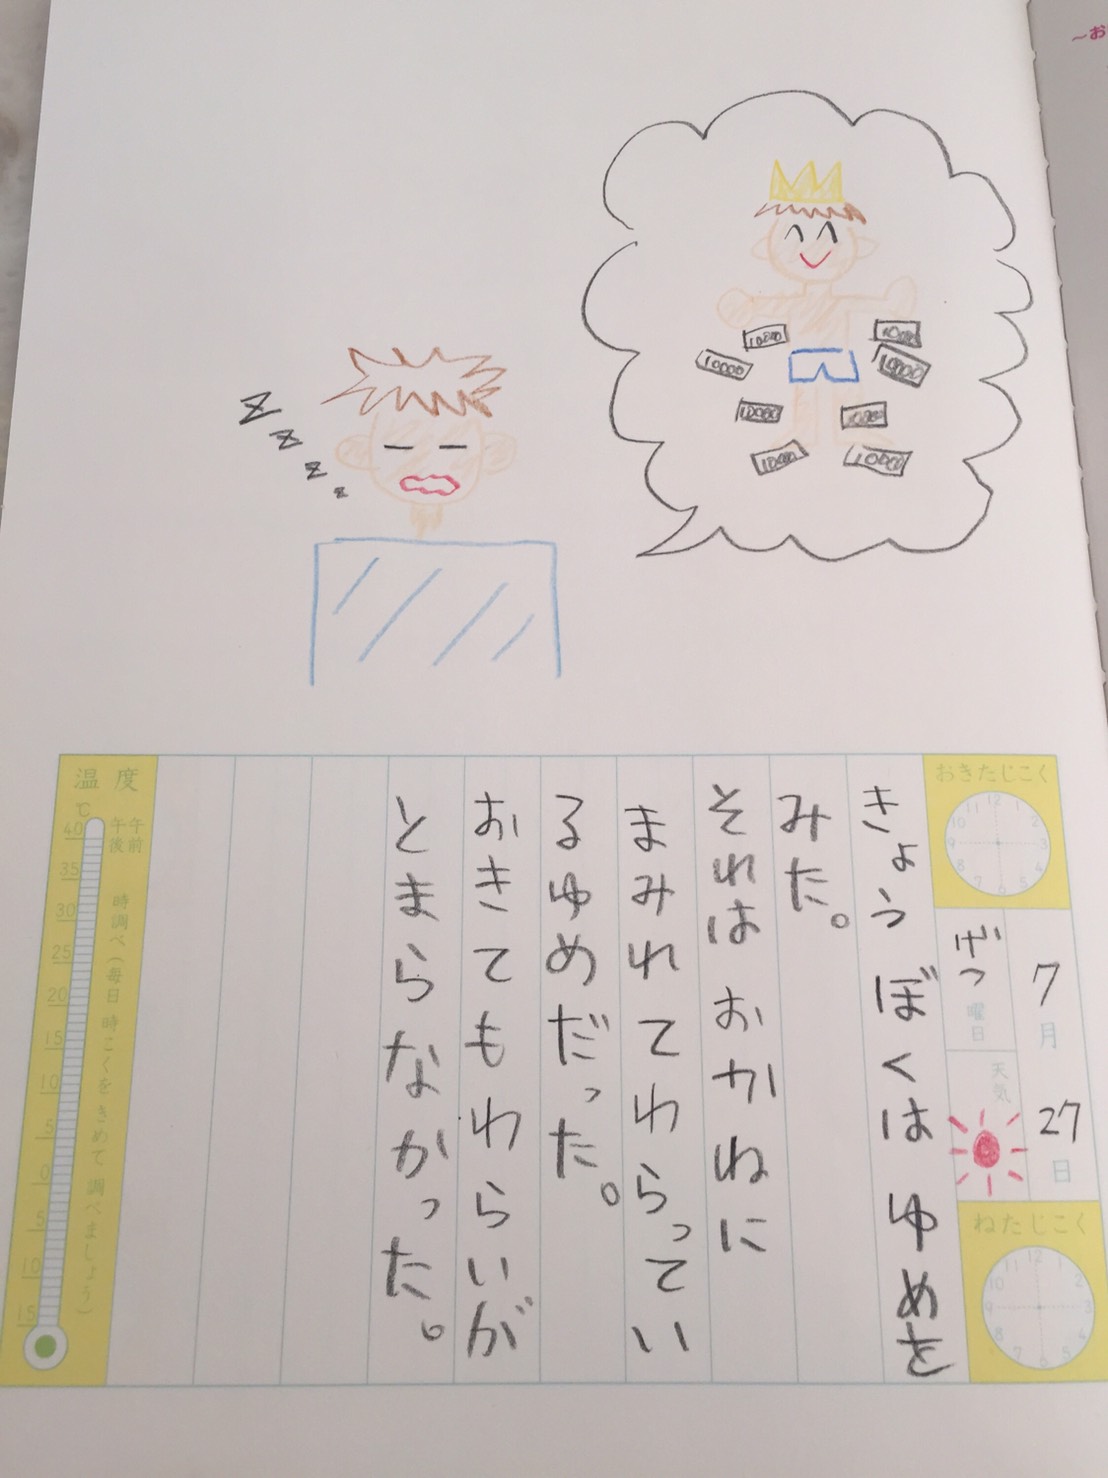 ～お
10000
10000
10000
10000
10000
10000
10000
10000
z
z
z
z
おきたじこく
12
1
2
3
4
5
6
7
8
9
10
11
7月27日
げつ曜日
天気
ねたじこく
12
1
2
3
4
5
6
7
8
9
10
11
きょうぼくはゆめを
みた。
それはおかねに
まみれてわらってい
るゆめだった。
おきてもわらいが
とまらなかった。
温度
℃
午前
午後
時調べ（毎日時こくをきめて調べましょう）
40
35
30
25
20
15
10
5
0
5
10
15